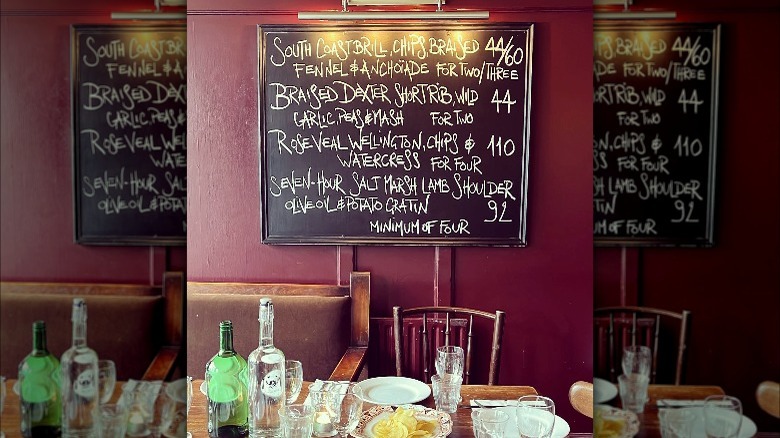 SOUTH COAST BRILL, CHIPS, BRAISED 44/60
FENNEL & ANCHOÏADE FOR TWO/THREE
BRAISED DEXTER SHORTRIB, WILD 44
GARLIC, PEAS & MASH FOR TWO
ROSE VEAL WELLINGTON, CHIPS & 110
WATERCRESS FOR FOUR
SEVEN-HOUR SALT MARSH LAMB SHOULDER
OLIVE OIL & POTATO GRATIN 92
MINIMUM OF FOUR